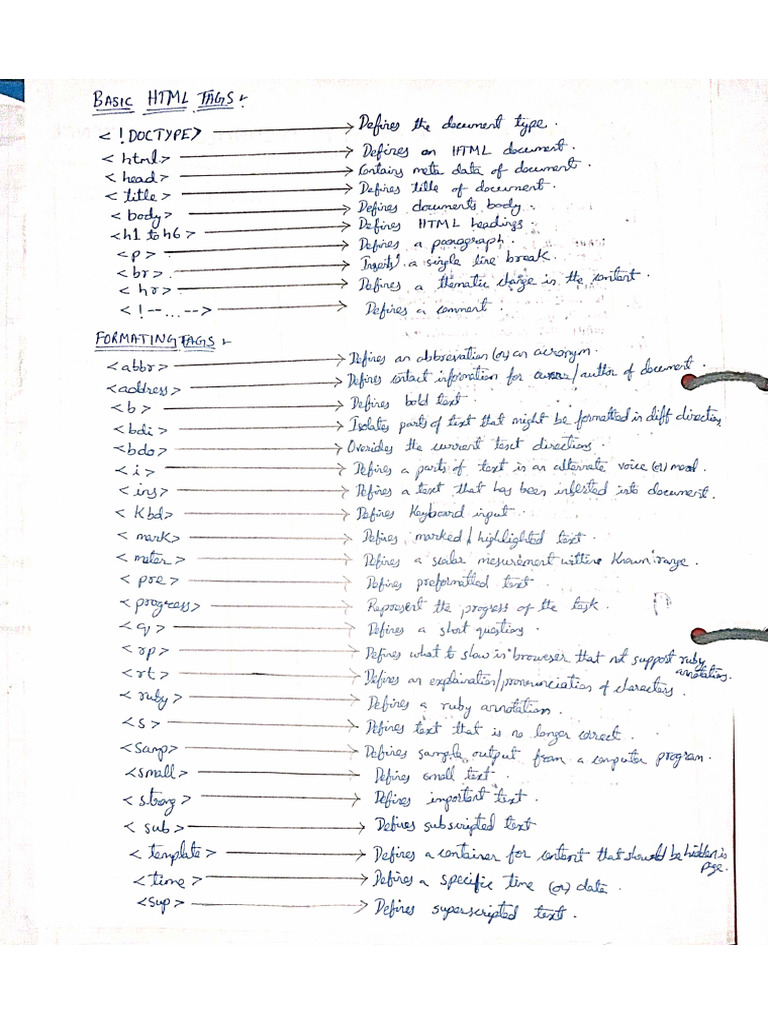 BASIC HTML TAGS :-
<!DOCTYPE> → Defines the document type.
<html> → Defines an HTML document.
<head> → Contains meta data of document.
<title> → Defines title of document.
<body> → Defines documents body.
<h1 to h6> → Defines HTML headings.
<p> → Defines a paragraph.
<br> → Inserts a single line break.
<hr> → Defines a thematic change in the content.
<!--....--> → Defines a comment.
FORMATING TAGS :-
<abbr> → Defines an abbrevation (or) an acronym.
<address> → Defines contact information for /author of document.
<b> → Defines bold text.
<bdi> → Isolates parts of text that might be formatted in diff direction,
<bdo> → Overides the current text directions.
<i> → Defines a parts of text in an alternate voice (or) mood.
<ins> → Defines a text that has been inserted into document.
<Kbd> → Defines Keyboard input.
<mark> → Defines marked/highlighted text
<meter> → Defines a scalar mesurement Known range.
<pre> → Defines preformatted text.
<progress> → Represent the progress of the task.
<q> → Defines a short questions.
<rp> → Defines what to show in browser that not support ruby
annotation.
<rt> → Defines an explaination/pronunciation of characters.
<ruby> → Defines a ruby annotation.
<s> → Defines text that is no longer correct.
<samp> → Defines sample output from a computer program.
<small> → Defines small text.
<strong> → Defines important text.
<sub> → Defines subscripted text
<template> → Defines a container for content that should be hidden is
page.
<time> → Defines a specific time (or) data.
<sup> → Defines superscripted text.